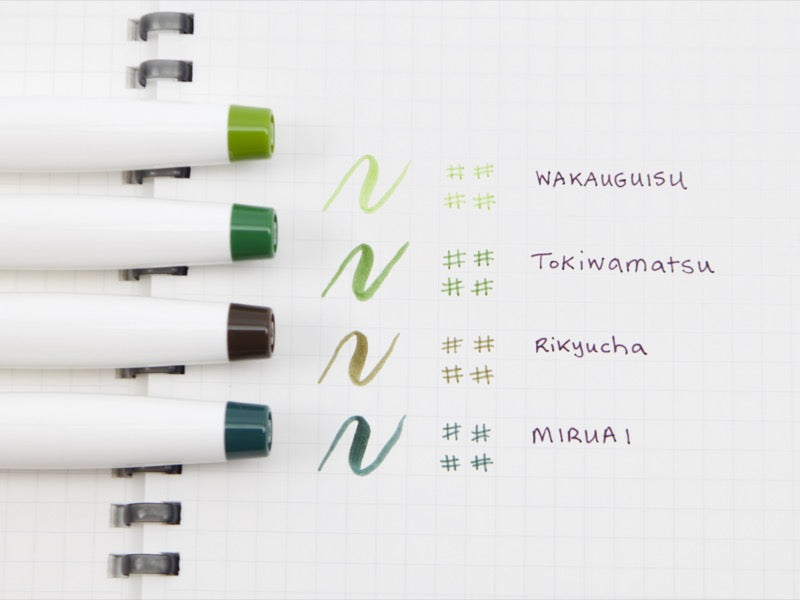 # # WAKAUGUISU
# #
# # Tokiwamatsu
# #
# # Rikyucha
# #
# # MIRUAI
# #